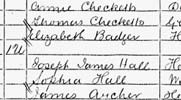 Annie Checketts
Thomas Checketts
Elizabeth Badger
Joseph James Hall
Sophia Hall
James Archer